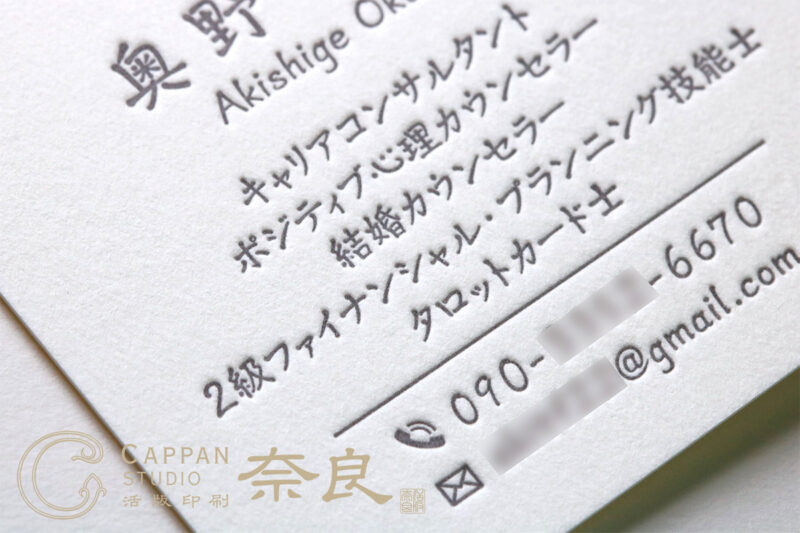 奥野
Akishige
キャリアコンサルタント
ポジティブ心理カウンセラー
結婚カウンセラー
2級ファイナンシャル・プランニング技能士
タロットカード士
090- -6670
@gmail.com
CAPPAN
STUDIO
活版印刷
奈良